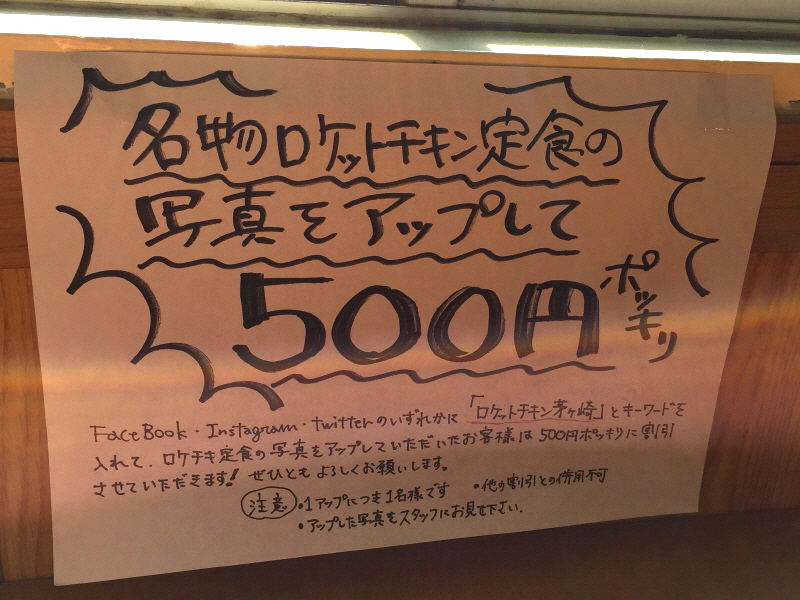 名物ロケットチキン定食の
写真をアップして
500円ポッキリ
FaceBook・Instagram・twitterのいずれかに「ロケットチキン茅ヶ崎」とキーワードを
入れて、ロケチキ定食の写真をアップしていただいたお客様は500円ポッキリに割引
させていただきます! ぜひともよろしくお願いします。
注意 •1アップにつき1名様です •他の割引との併用不可
•アップした写真をスタッフにお見せ下さい.